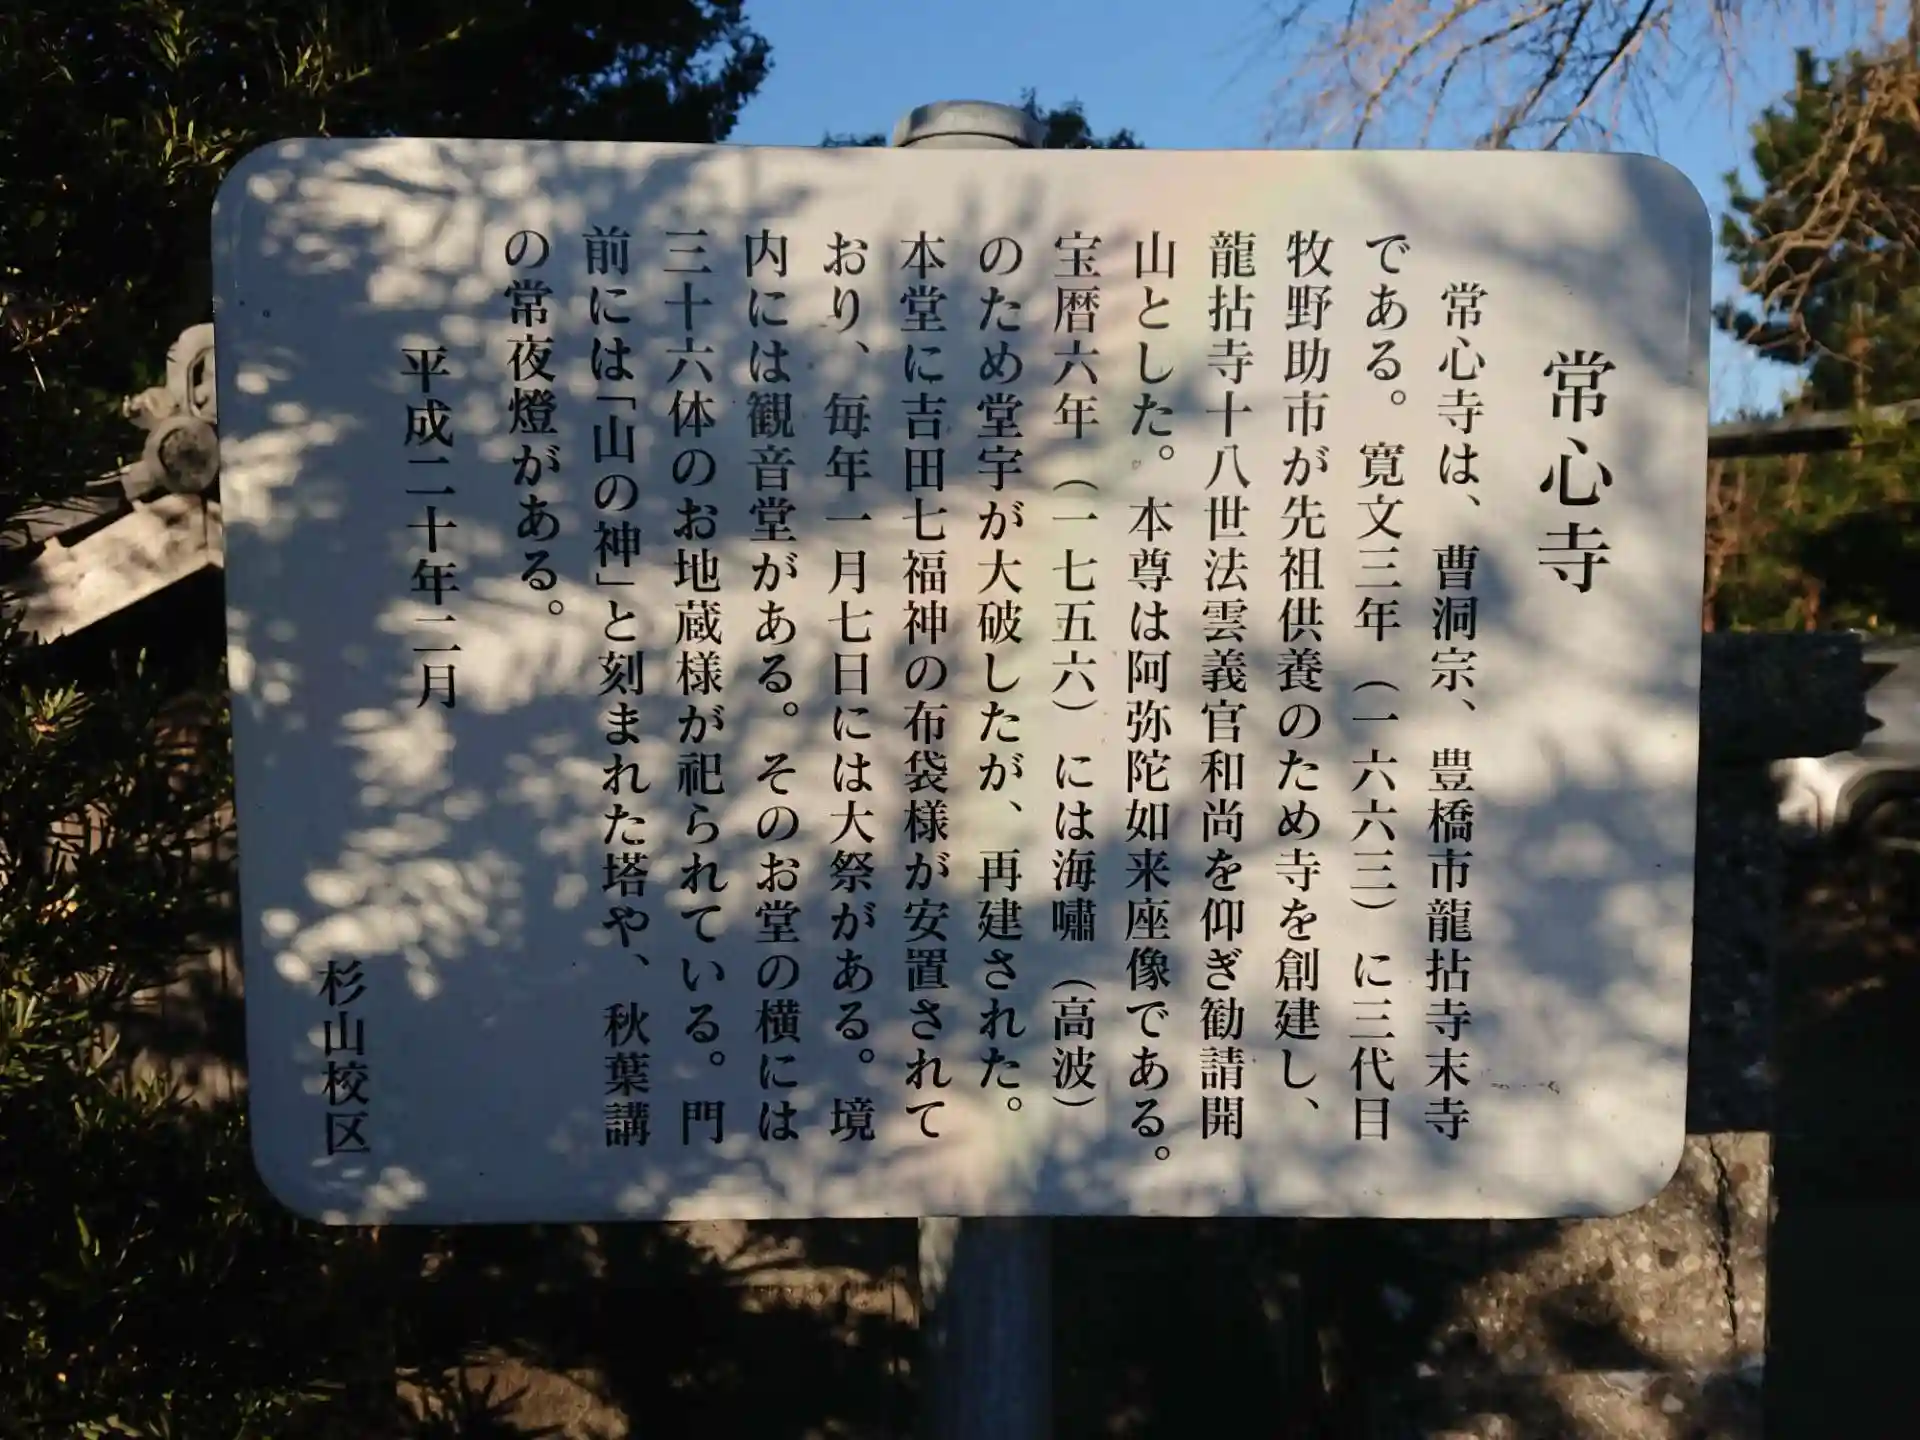 常心寺
常心寺は、曹洞宗、豊橋市龍拈寺末寺
である。寛文三年（一六六三）に三代目
牧野助市が先祖供養のため寺を創建し、
龍拈寺十八世法雲義官和尚を仰ぎ勧請開
山とした。本尊は阿弥陀如来座像である。
宝暦六年（一七五六）には海嘯（高波）
のため堂宇が大破したが、再建された。
本堂に吉田七福神の布袋様が安置されて
おり、毎年一月七日には大祭がある。境
内には観音堂がある。そのお堂の横には
三十六体のお地蔵様が祀られている。門
前には「山の神」と刻まれた塔や、秋葉講
の常夜燈がある。
平成二十年二月
杉山校区